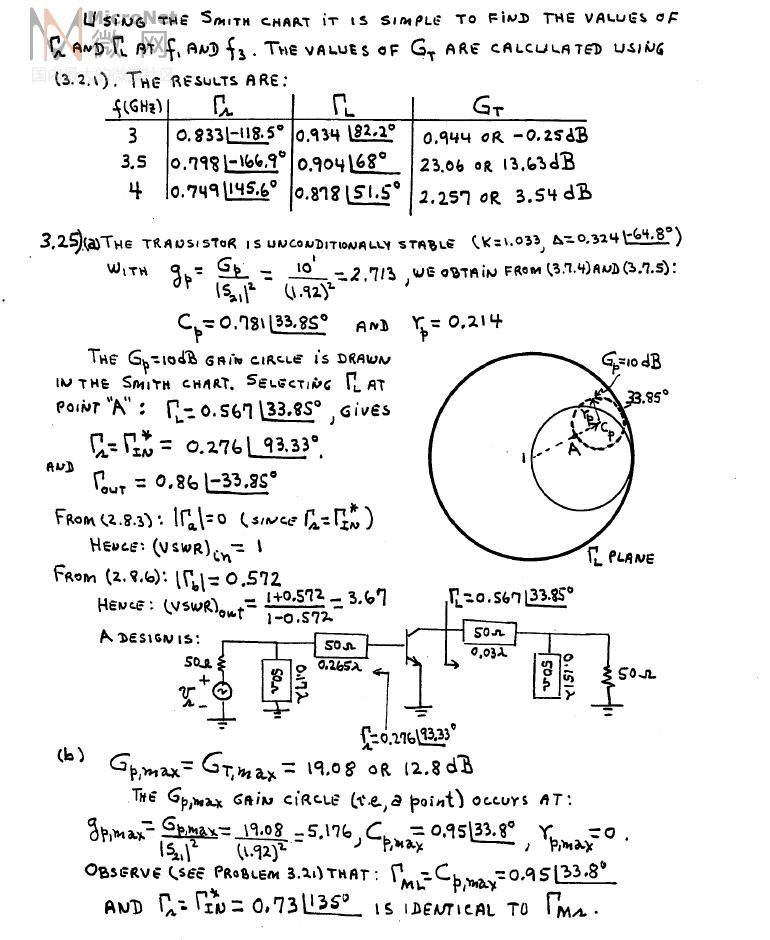 MicroNet
微网
USING THE SMITH CHART IT IS SIMPLE TO FIND THE VALUES OF
Γs AND ΓL AT f1 AND f3. THE VALUES OF GT ARE CALCULATED USING
(3.2.1). THE RESULTS ARE:
f(GHz) Γs ΓL GT
3 0.833∠-118.5° 0.934∠82.2° 0.944 OR -0.25dB
3.5 0.798∠-166.9° 0.904∠68° 23.06 OR 13.63dB
4 0.749∠145.6° 0.878∠51.5° 2.257 OR 3.54dB
3.25)(a) THE TRANSISTOR IS UNCONDITIONALLY STABLE (K=1.033, Δ=0.324∠-64.8°)
WITH gp = Gp/|S21|² = 10¹/(1.92)² = 2.713, WE OBTAIN FROM (3.7.4) AND (3.7.5):
Cp = 0.781∠33.85° AND rp = 0.214
THE Gp=10dB GAIN CIRCLE IS DRAWN
IN THE SMITH CHART. SELECTING ΓL AT
POINT "A": ΓL = 0.567∠33.85°, GIVES
Γs = ΓIN* = 0.276∠93.33°.
AND
Γout = 0.86∠-33.85°
Gp=10dB
33.85°
rp
Cp
A
1
ΓL PLANE
FROM (2.8.3): |Γa|=0 (SINCE Γs=ΓIN*)
HENCE: (VSWR)in = 1
FROM (2.8.6): |Γb| = 0.572
HENCE: (VSWR)out = 1+0.572/1-0.572 = 3.67
ΓL=0.567∠33.85°
A DESIGN IS:
50Ω
+
Vs
-
50Ω
0.17λ
50Ω
0.265λ
50Ω
0.03λ
50Ω
0.151λ
50Ω
Γs=0.276∠93.33°
(b) Gp,max = GT,max = 19.08 OR 12.8dB
THE Gp,max GAIN CIRCLE (i.e, a point) OCCURS AT:
gp,max = Gp,max/|S21|² = 19.08/(1.92)² = 5.176, Cp,max = 0.95∠33.8°, rp,max = 0.
OBSERVE (SEE PROBLEM 3.21) THAT: ΓML = Cp,max = 0.95∠33.8°
AND Γs = ΓIN* = 0.73∠135° IS IDENTICAL TO ΓMs.